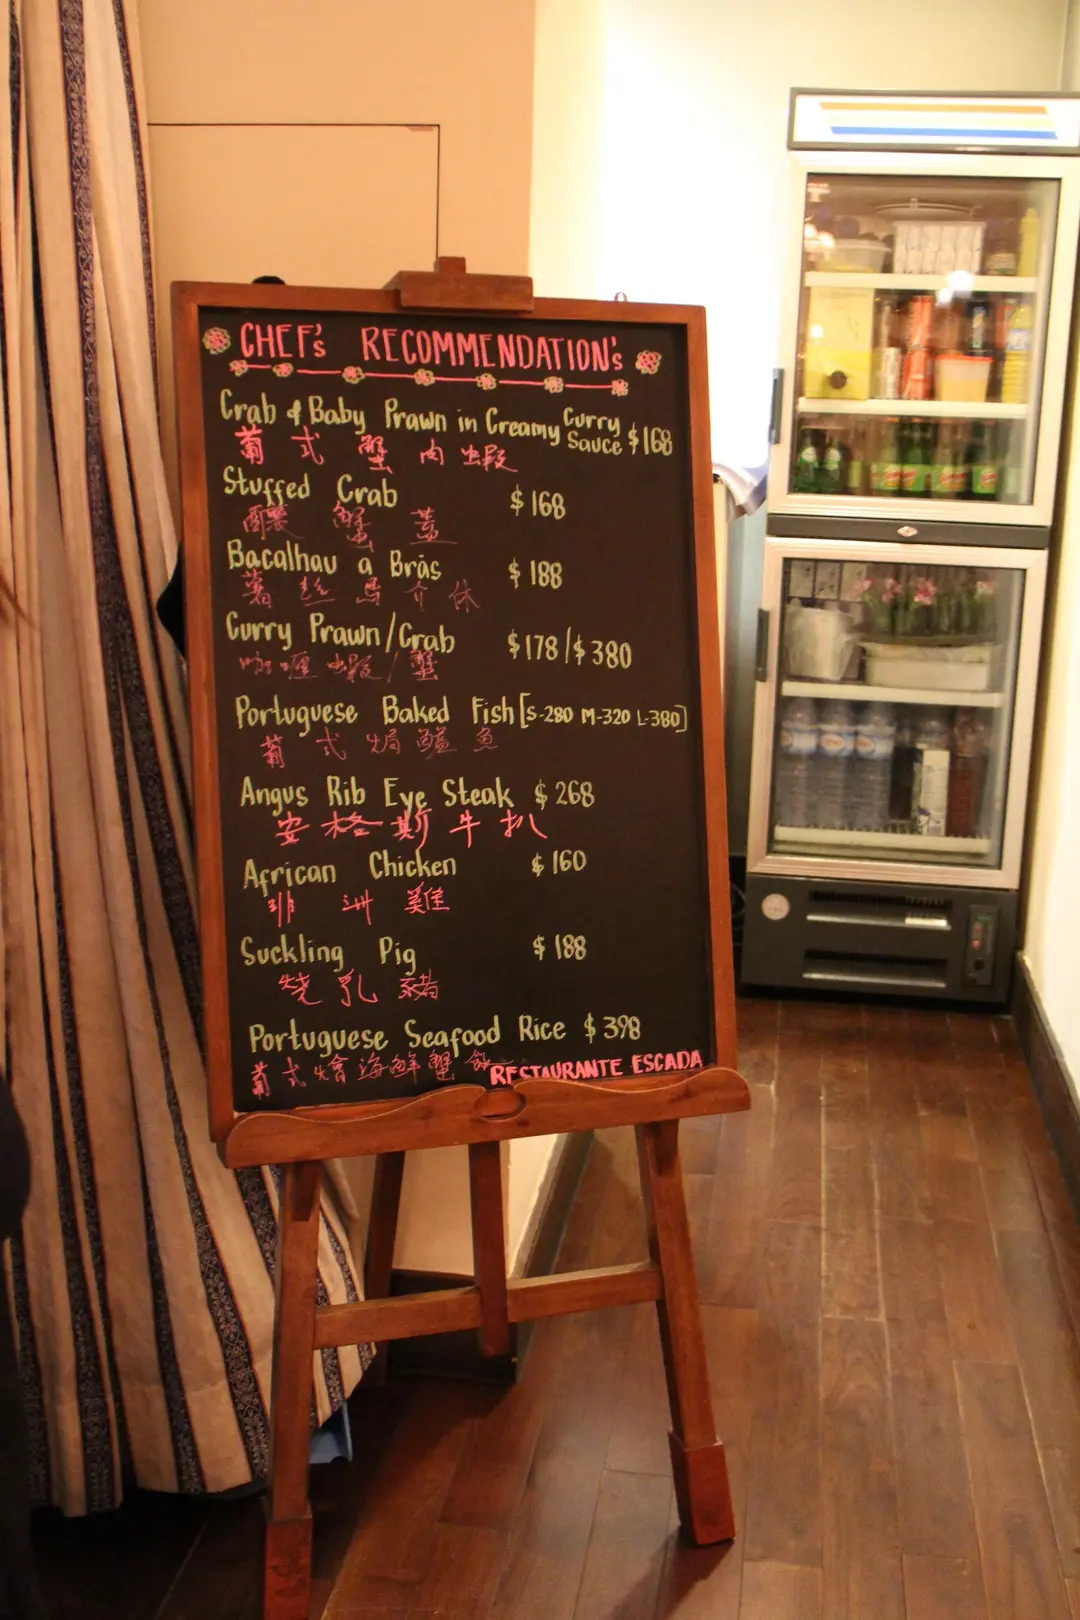 CHEF's RECOMMENDATION's
Crab & Baby Prawn in Creamy Curry Sauce $168
葡式蟹肉蝦
Stuffed Crab $168
釀蟹蓋
Bacalhau a Brás $188
薯絲馬介休
Curry Prawn/Crab $178/$380
咖喱蝦/蟹
Portuguese Baked Fish [S-280 M-320 L-380]
葡式焗鱸魚
Angus Rib Eye Steak $268
安格斯牛扒
African Chicken $160
非洲雞
Suckling Pig $188
燒乳豬
Portuguese Seafood Rice $398
葡式燴海鮮蟹飯
RESTAURANTE ESCADA